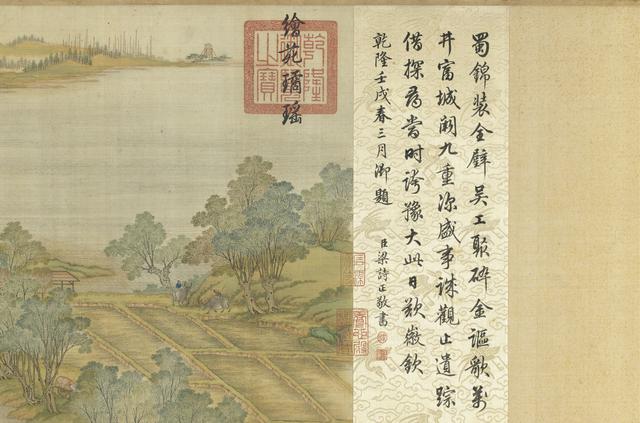 蜀錦裝全璧吳工聚碎金謳歌萬
井富城闕九重深盛事誠觀止遺蹤
借探尋當時誇豫大此日歎徽欽
乾隆壬戌春三月御題
臣梁詩正敬書
繪苑璚瑤
乾隆
之寶